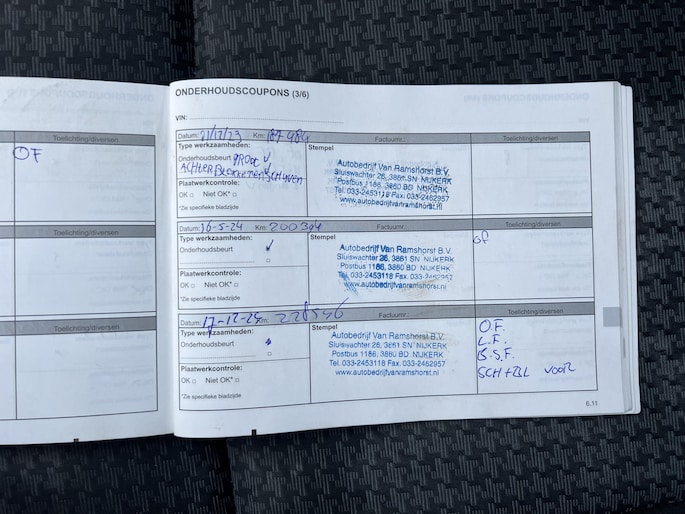 Toelichting/diversen
OF
Toelichting/diversen
Toelichting/diversen
ONDERHOUDSCOUPONS (3/6)
VIN:
Datum: 21/12/23 Km: 187 484 Factuurnr.: Toelichting/diversen
Type werkzaamheden:
Onderhoudsbeurt GROOT ✓
ACHTER BLOKKEN EN SCHIJVEN
Plaatwerkcontrole:
OK □ Niet OK* □
*Zie specifieke bladzijde
Stempel
Autobedrijf Van Ramshorst B.V.
Sluiswachter 26, 3861 SN NIJKERK
Postbus 1186, 3860 BD NIJKERK
Tel. 033-2453118 Fax. 033-2462957
www.autobedrijfvanramshorst.nl
Datum: 16-5-24 Km: 200304 Factuurnr.: Toelichting/diversen
Type werkzaamheden:
Onderhoudsbeurt ✓
Plaatwerkcontrole:
OK □ Niet OK* □
*Zie specifieke bladzijde
Stempel
Autobedrijf Van Ramshorst B.V.
Sluiswachter 26, 3861 SN NIJKERK
Postbus 1186, 3860 BD NIJKERK
Tel. 033-2453118 Fax. 033-2462957
www.autobedrijfvanramshorst.nl
of
Datum: 17-12-24 Km: 228546 Factuurnr.: Toelichting/diversen
Type werkzaamheden:
Onderhoudsbeurt
Plaatwerkcontrole:
OK □ Niet OK* □
*Zie specifieke bladzijde
Stempel
Autobedrijf Van Ramshorst B.V.
Sluiswachter 26, 3861 SN NIJKERK
Postbus 1186, 3860 BD NIJKERK
Tel. 033-2453118 Fax. 033-2462957
www.autobedrijfvanramshorst.nl
O.F.
L.F.
B.S.F.
SCH+BL VOOR
6.11